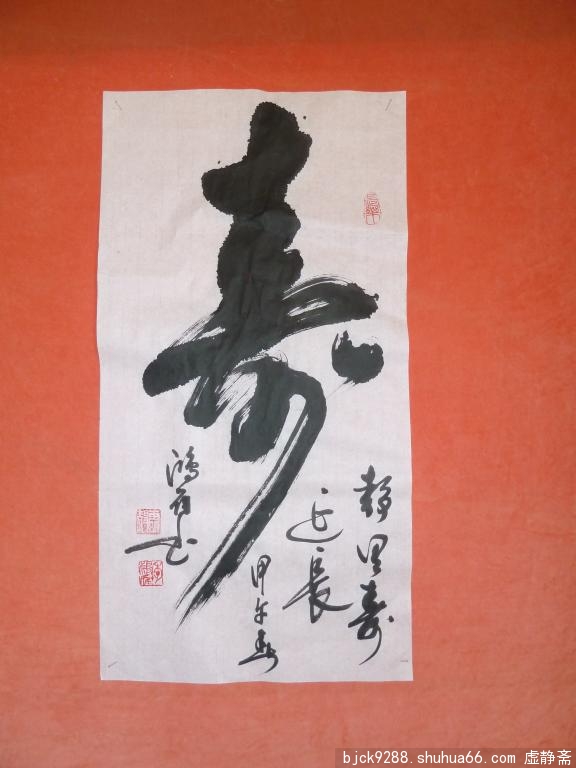 寿
静里寿
延长
甲午春
鸿石书
bjck9288.shuhua66.com 虚静斋